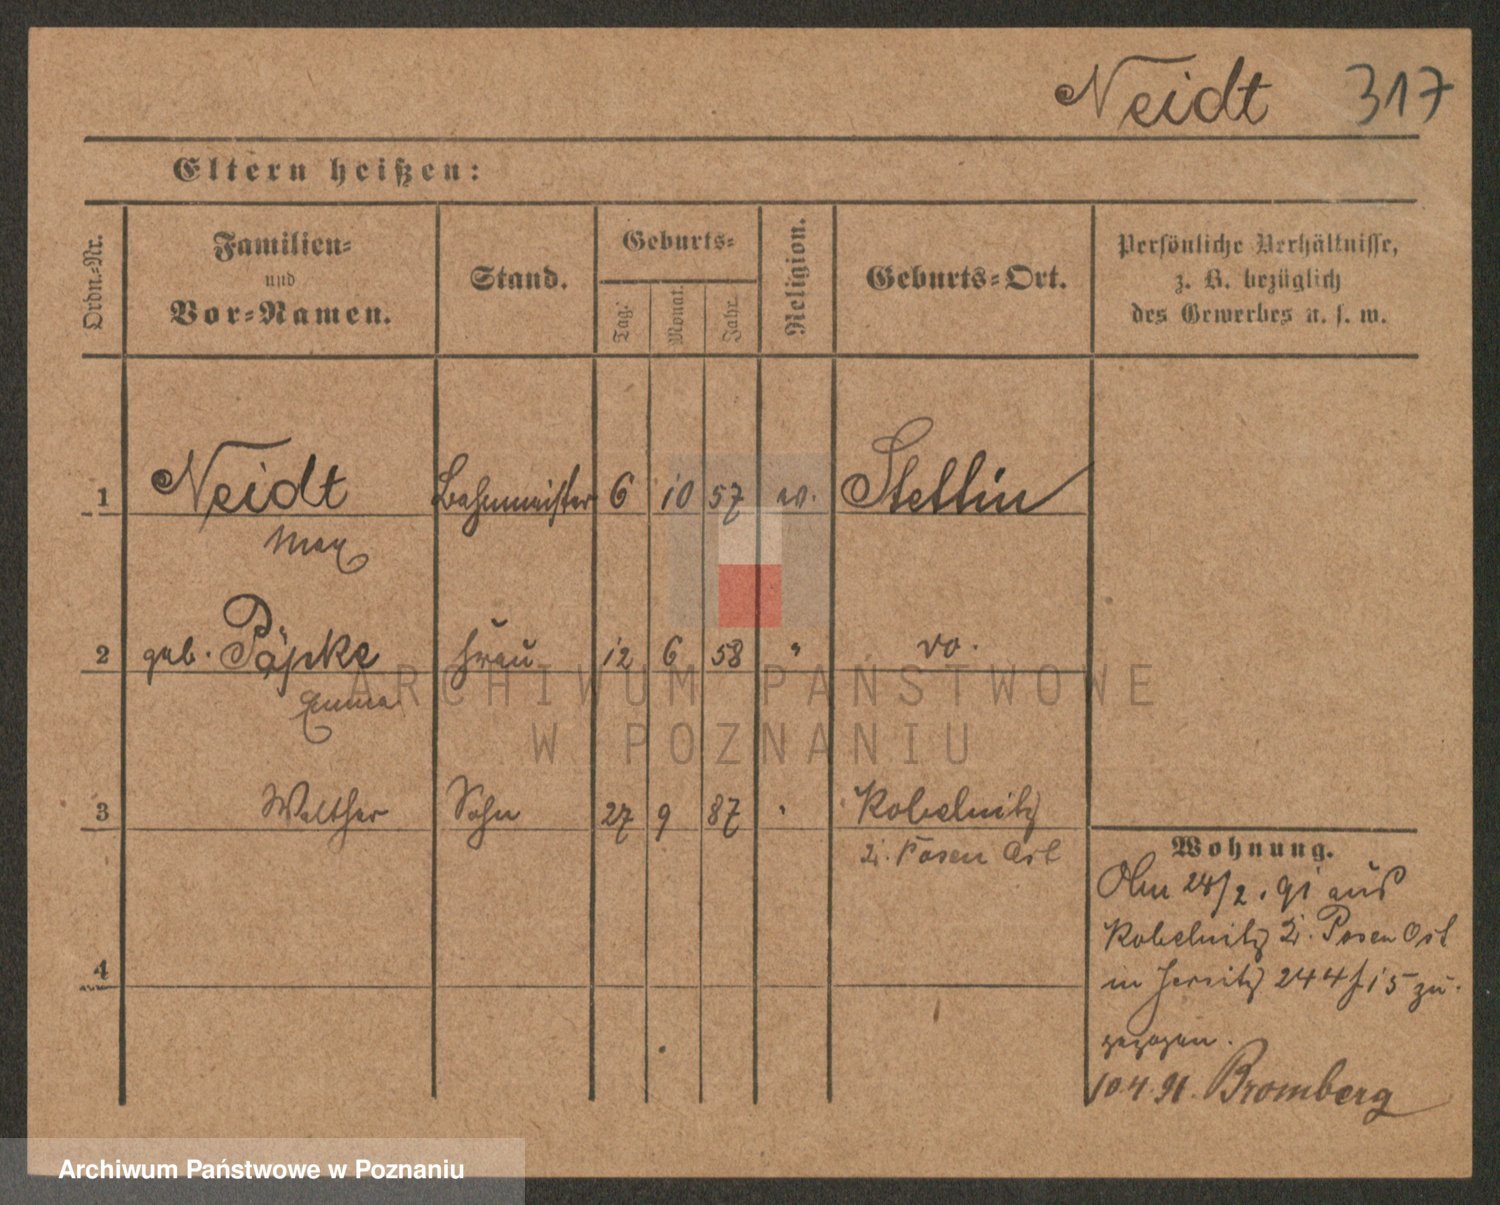 Neidt 317
Eltern heißen:
Ordn.-Nr.
Familien-
und
Vor-Namen.
Stand.
Geburts-
Tag.
Monat.
Jahr.
Religion.
Geburts-Ort.
Persönliche Verhältnisse,
z. B. bezüglich
des Gewerbes u. s. w.
1 Neidt Bahnmeister 6 10 57 ev. Stettin
Max
2 geb. Päpke Frau 12 6 58 " do.
Emma
3 Walther Sohn 27 9 87 " Kobelnitz
Posen Ost
Wohnung.
24/2. 91 aus
Kobelnitz Posen Ost
in Jersitz 244/15 zu-
gezogen.
10.4.91. Bromberg
4
ARCHIWUM PAŃSTWOWE
W POZNANIU
Archiwum Państwowe w Poznaniu